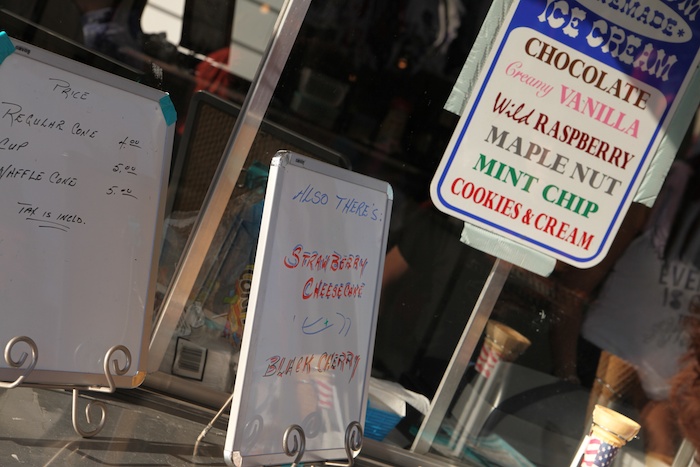 PRICE
REGULAR CONE 4.00
CUP 5.00
WAFFLE CONE 5.00
TAX IS INCLD.
ALSO THERE'S:
STRAWBERRY
CHEESECAKE
BLACK CHERRY
HOMEMADE
ICE CREAM
CHOCOLATE
Creamy VANILLA
Wild RASPBERRY
MAPLE NUT
MINT CHIP
COOKIES & CREAM